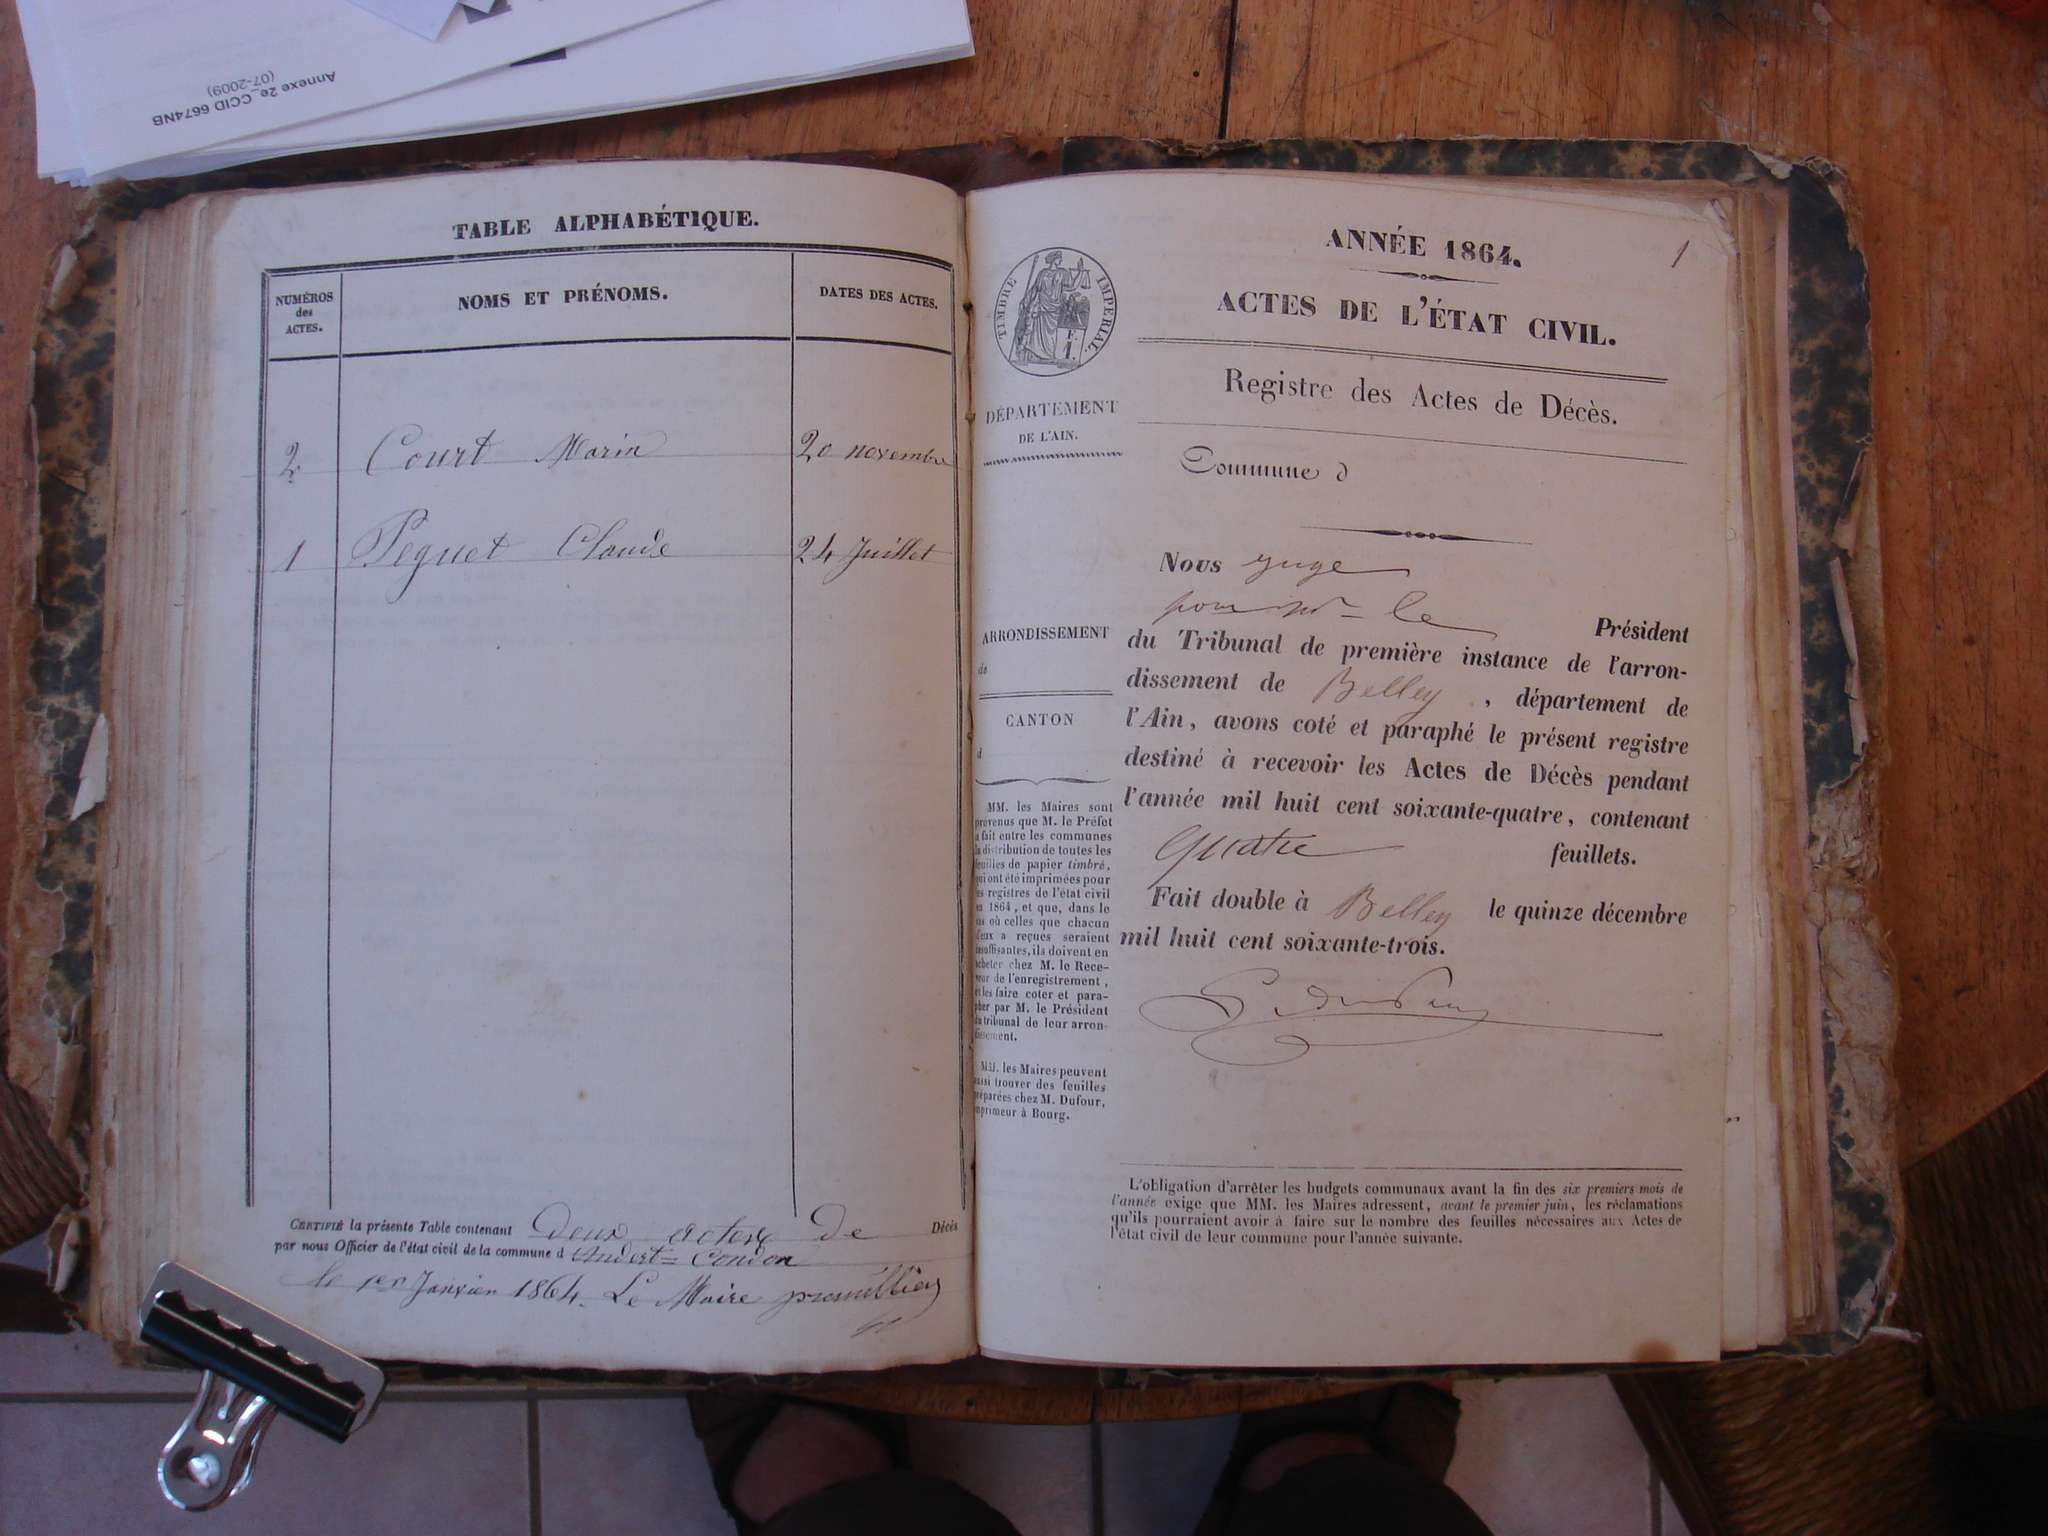 Annexe 2e_CCID 6674NB
(07-2009)
TABLE ALPHABÉTIQUE.
NUMÉROS
des
ACTES.
NOMS ET PRÉNOMS.
DATES DES ACTES.
2 Court Marin 20 novembre
1 Peguet Claude 24 Juillet
CERTIFIÉ la présente Table contenant deux actes de Décès
par nous Officier de l'état civil de la commune d Andert-Condon
le 1er Janvier 1864. Le Maire
1
ANNÉE 1864.
ACTES DE L'ÉTAT CIVIL.
TIMBRE IMPÉRIAL.
F.
1.
Registre des Actes de Décès.
DÉPARTEMENT
DE L'AIN.
Commune d
ARRONDISSEMENT
de
CANTON
d
MM. les Maires sont
prévenus que M. le Préfet
a fait entre les communes
la distribution de toutes les
feuilles de papier timbré,
qui ont été imprimées pour
les registres de l'état civil
en 1864, et que, dans le
cas où celles que chacun
d'eux a reçues seraient
insuffisantes, ils doivent en
acheter chez M. le Rece-
veur de l'enregistrement,
et les faire coter et para-
pher par M. le Président
du tribunal de leur arron-
dissement.
MM. les Maires peuvent
aussi trouver des feuilles
préparées chez M. Dufour,
imprimeur à Bourg.
Nous Juge
pour Mr le Président
du Tribunal de première instance de l'arron-
dissement de Belley, département de
l'Ain, avons coté et paraphé le présent registre
destiné à recevoir les Actes de Décès pendant
l'année mil huit cent soixante-quatre, contenant
quatre feuillets.
Fait double à Belley le quinze décembre
mil huit cent soixante-trois.
L'obligation d'arrêter les budgets communaux avant la fin des six premiers mois de
l'année exige que MM. les Maires adressent, avant le premier juin, les réclamations
qu'ils pourraient avoir à faire sur le nombre des feuilles nécessaires aux Actes de
l'état civil de leur commune pour l'année suivante.